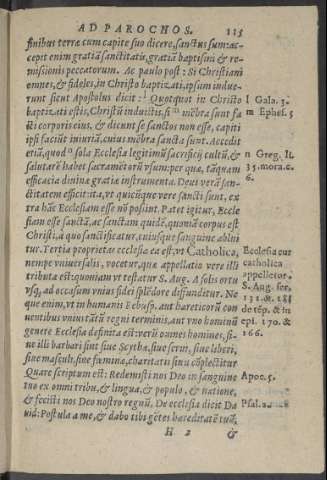 AD PAROCHOS. 115
finibus terræ cum capite suo dicere, sanctus sum: ac-
cepit enim gratiā sanctitatis, gratiā baptismi & re-
missionis peccatorum. Ac paulo post: Si Christiani
omnes, & fideles, in Christo baptizati, ipsum indue-
runt sicut Apostolus dicit: l Quotquot in Christo
l Gala. 3.
baptizati estis, Christū induistis, si m mēbra sunt fa
m Ephes. 5
cti corporis eius, & dicunt se sanctos non esse, capiti
ipsi faciūt iniuriā, cuius mēbra sancta sunt. Accedit
etiā, quod n sola Ecclesia legitimū sacrificij cultū, &
n Greg. li.
salutarē habet sacramētorū vsum: per quæ, tāquam
35. mora. c.
efficacia diuinæ gratiæ instrumenta, Deus verā san-
6.
ctitatem efficit: ita, vt quicūque vere sancti sunt, ex
tra hāc Ecclesiam esse nō possint. Patet igitur, Eccle
siam esse sanctā, ac sanctam quidē, quoniā corpus est
Christi, à quo sanctificatur, cuiusque sanguine ablui
tur. Tertia proprietas ecclesiæ ea est, vt Catholica,
Ecclesia cur
nempe vniuersalis, vocetur, quæ appellatio vere illi
catholica
tributa est: quoniam vt testatur S. Aug. à solis ortu
appelletur.
vsq; ad occasum vnius fidei splēdore diffunditur. Ne
S. Aug. ser.
que enim, vt in humanis Rebusp. aut hæreticorū con
131. & 181
uentibus vnius tātū regni terminis, aut vno hominū
de tēp. & in
genere Ecclesia definita est: verū omnes homines, si-
epi. 170. &
ue illi barbari sint siue Scythæ, siue serui, siue liberi,
166.
siue masculi, siue fœminæ, charitatis sinu cōplectitur
Quare scriptum est: Redemisti nos Deo in sanguine
Apoc. 5.
tuo ex omni tribu, & lingua, & populo, & natione,
& fecisti nos Deo nostro regnū. De ecclesia dicit Da
Psal. 2.
uid: Postula à me, & dabo tibi gētes hæreditatē tuā,
H 2 &